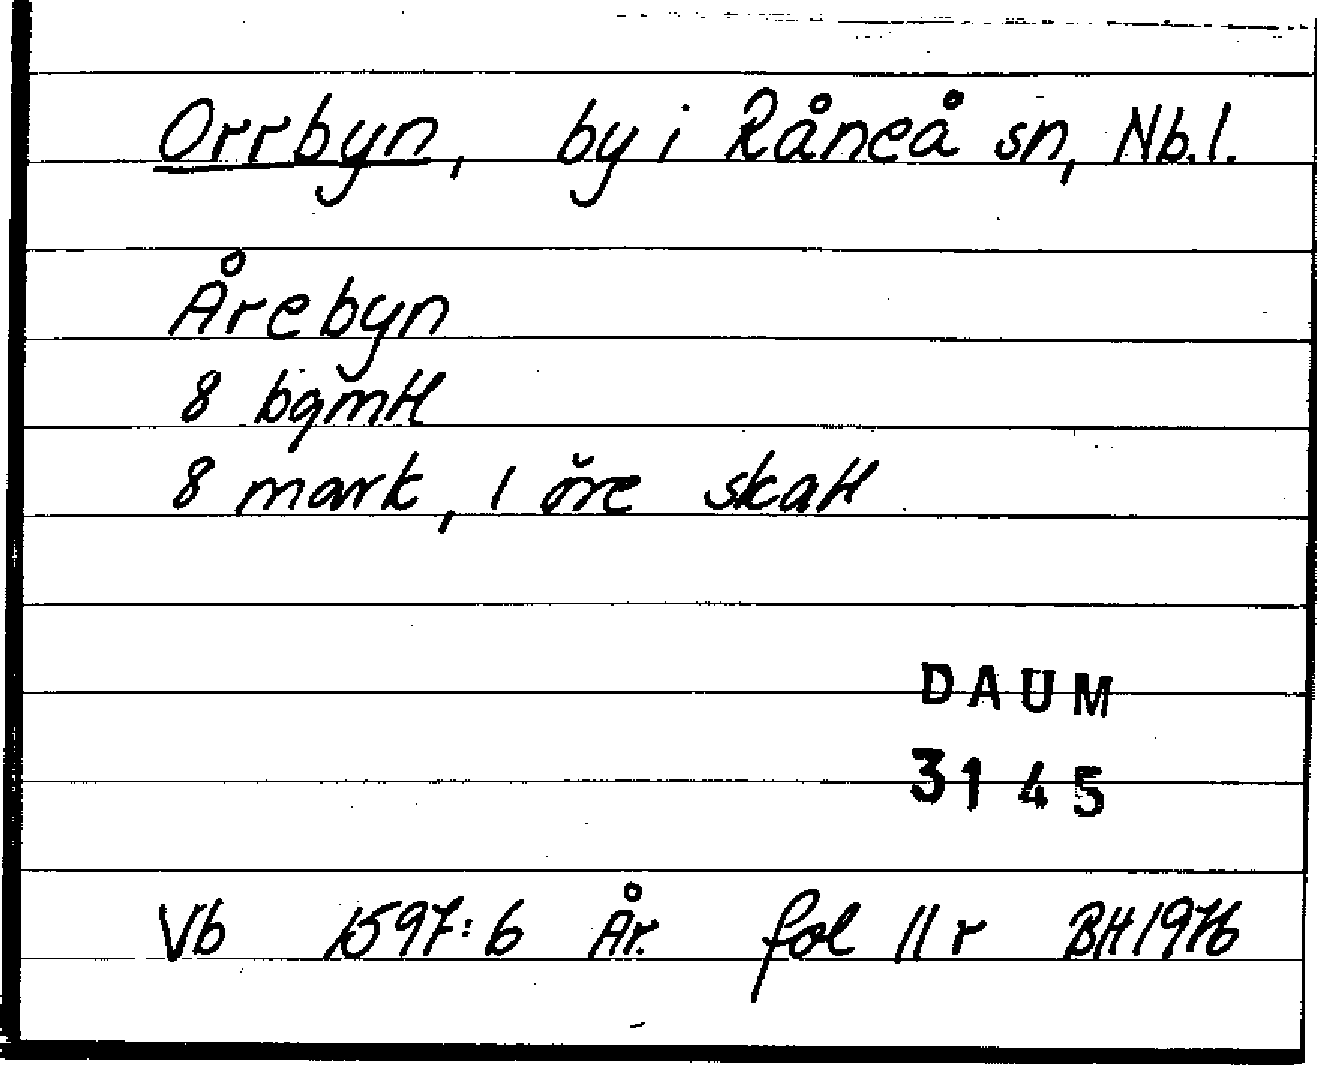 Orrbyn, by i Råneå sn, Nb.l.
Årebyn
8 bgmtl
8 mark, 1 öre skatt
DAUM
3145
Vb 1597:6 År. fol 11 r BH 1976